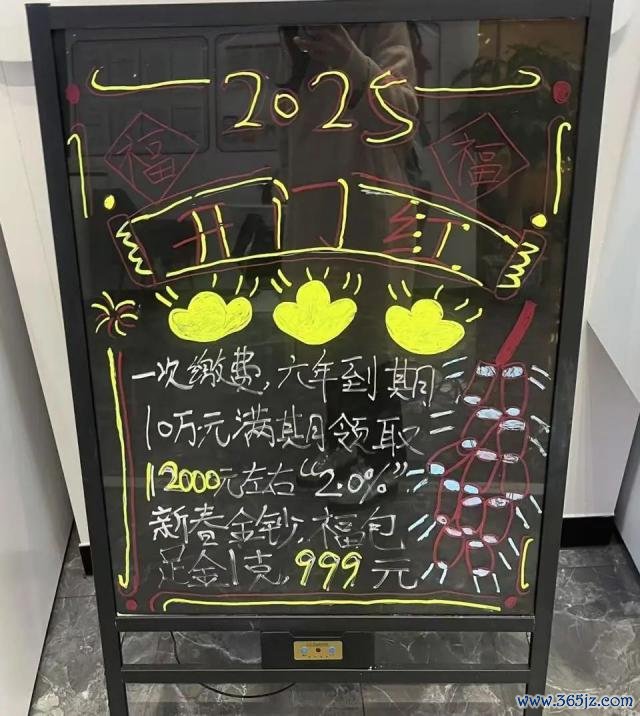 2025
福 福
开门红
一次缴费,六年到期
10万元满期领取
12000元左右“2.0%”
新春金钞.福包
足金1克,999元
www.365jz.com